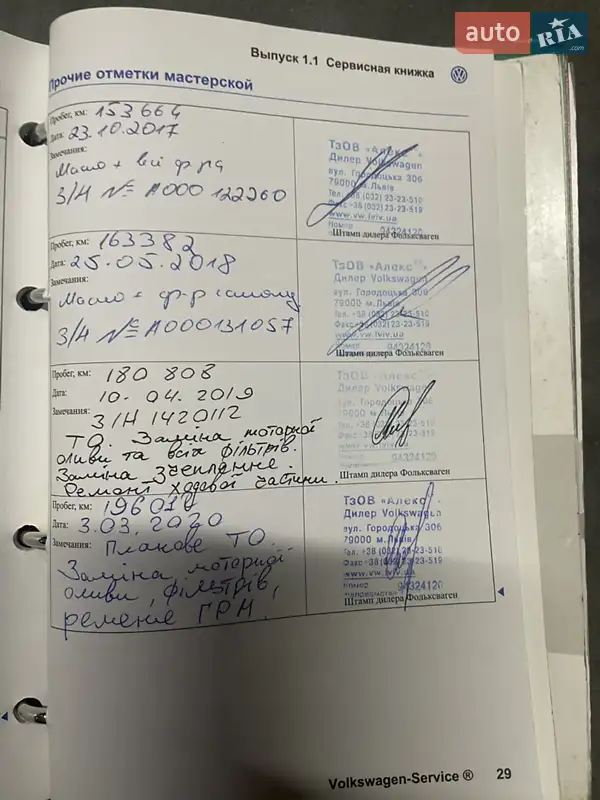 auto RIA .com
Выпуск 1.1 Сервисная книжка
Прочие отметки мастерской
Пробег, км: 153664
Дата: 23.10.2017
Замечания:
Масло + всі ф-ра
З/Н № А000 122260
ТзОВ «Алекс»
Дилер Volkswagen
вул. Городоцька 306
79000 м.Львів
Тел. +38 (032) 23-23-518
Факс +38 (032) 23-23-519
www.vw.lviv.ua
Номер 94324120
Штамп дилера Фольксваген
Пробег, км: 163382
Дата: 25.05.2018
Замечания:
Масло + ф-р салону
З/Н № А000131057
ТзОВ «Алекс»
Дилер Volkswagen
вул. Городоцька 306
79000 м.Львів
Тел. +38 (032) 23-23-518
Факс +38 (032) 23-23-519
www.vw.lviv.ua
Номер 94324120
Штамп дилера Фольксваген
Пробег, км: 180 808
Дата: 10.04.2019
Замечания:
З/Н 1420112
ТО. Заміна моторної
оливи та всіх фільтрів.
Заміна зчеплення.
Ремонт ходової частини.
ТзОВ «Алекс»
Дилер Volkswagen
вул. Городоцька 306
79000 м.Львів
Штамп дилера Фольксваген
Пробег, км: 196010
Дата: 3.03.2020
Замечания: Планове ТО.
Заміна моторної
оливи, фільтрів,
ременю ГРМ.
ТзОВ «Алекс»
Дилер Volkswagen
вул. Городоцька 306
79000 м.Львів
Тел. +38 (032) 23-23-518
Факс +38 (032) 23-23-519
www.vw.lviv.ua
Номер 94324120
Штамп дилера Фольксваген
Volkswagen-Service ® 29